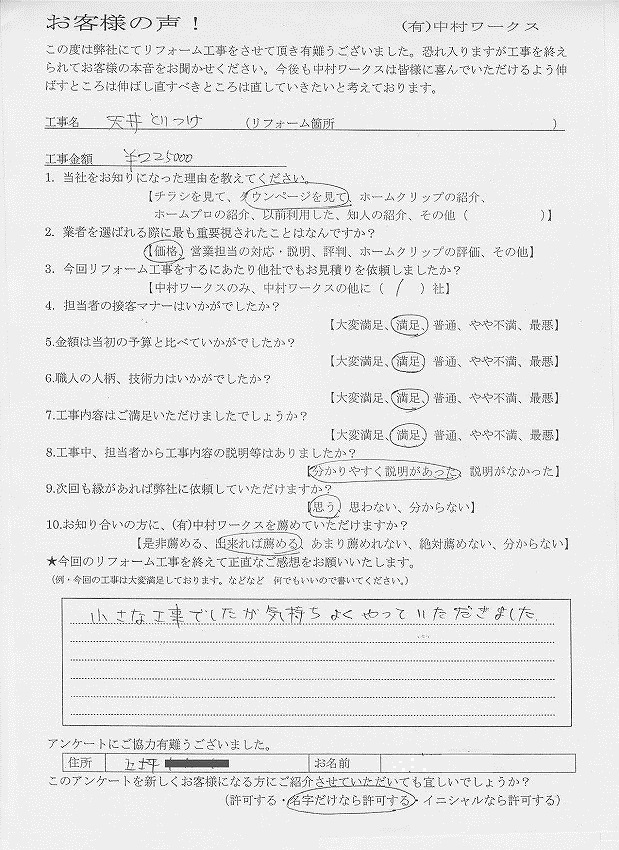 お客様の声！ (有)中村ワークス
この度は弊社にてリフォーム工事をさせて頂き有難うございました。恐れ入りますが工事を終え
られてお客様の本音をお聞かせください。今後も中村ワークスは皆様に喜んでいただけるよう伸
ばすところは伸ばし直すべきところは直していきたいと考えております。
工事名 天井とりつけ (リフォーム箇所 )
工事金額 ¥225000
1. 当社をお知りになった理由を教えてください。
【チラシを見て、タウンページを見て、ホームクリップの紹介、
ホームプロの紹介、以前利用した、知人の紹介、その他（ ）】
2. 業者を選ばれる際に最も重要視されたことはなんですか？
【価格、営業担当の対応・説明、評判、ホームクリップの評価、その他】
3. 今回リフォーム工事をするにあたり他社でもお見積りを依頼しましたか？
【中村ワークスのみ、中村ワークスの他に（ 1 ）社】
4. 担当者の接客マナーはいかがでしたか？
【大変満足、満足、普通、やや不満、最悪】
5.金額は当初の予算と比べていかがでしたか？
【大変満足、満足、普通、やや不満、最悪】
6.職人の人柄、技術力はいかがでしたか？
【大変満足、満足、普通、やや不満、最悪】
7.工事内容はご満足いただけましたでしょうか？
【大変満足、満足、普通、やや不満、最悪】
8.工事中、担当者から工事内容の説明等はありましたか？
【分かりやすく説明があった、説明がなかった】
9.次回も縁があれば弊社に依頼していただけますか？
【思う、思わない、分からない】
10.お知り合いの方に、(有)中村ワークスを薦めていただけますか？
【是非薦める、出来れば薦める、あまり薦めれない、絶対薦めない、分からない】
★今回のリフォーム工事を終えて正直なご感想をお願いいたします。
（例・今回の工事は大変満足しております。などなど 何でもいいので書いてください。）
小さな工事でしたが気持ちよくやっていただきました
アンケートにご協力有難うございました。
住所 お名前
このアンケートを新しくお客様になる方にご紹介させていただいても宜しいでしょうか？
（許可する・名字だけなら許可する・イニシャルなら許可する）